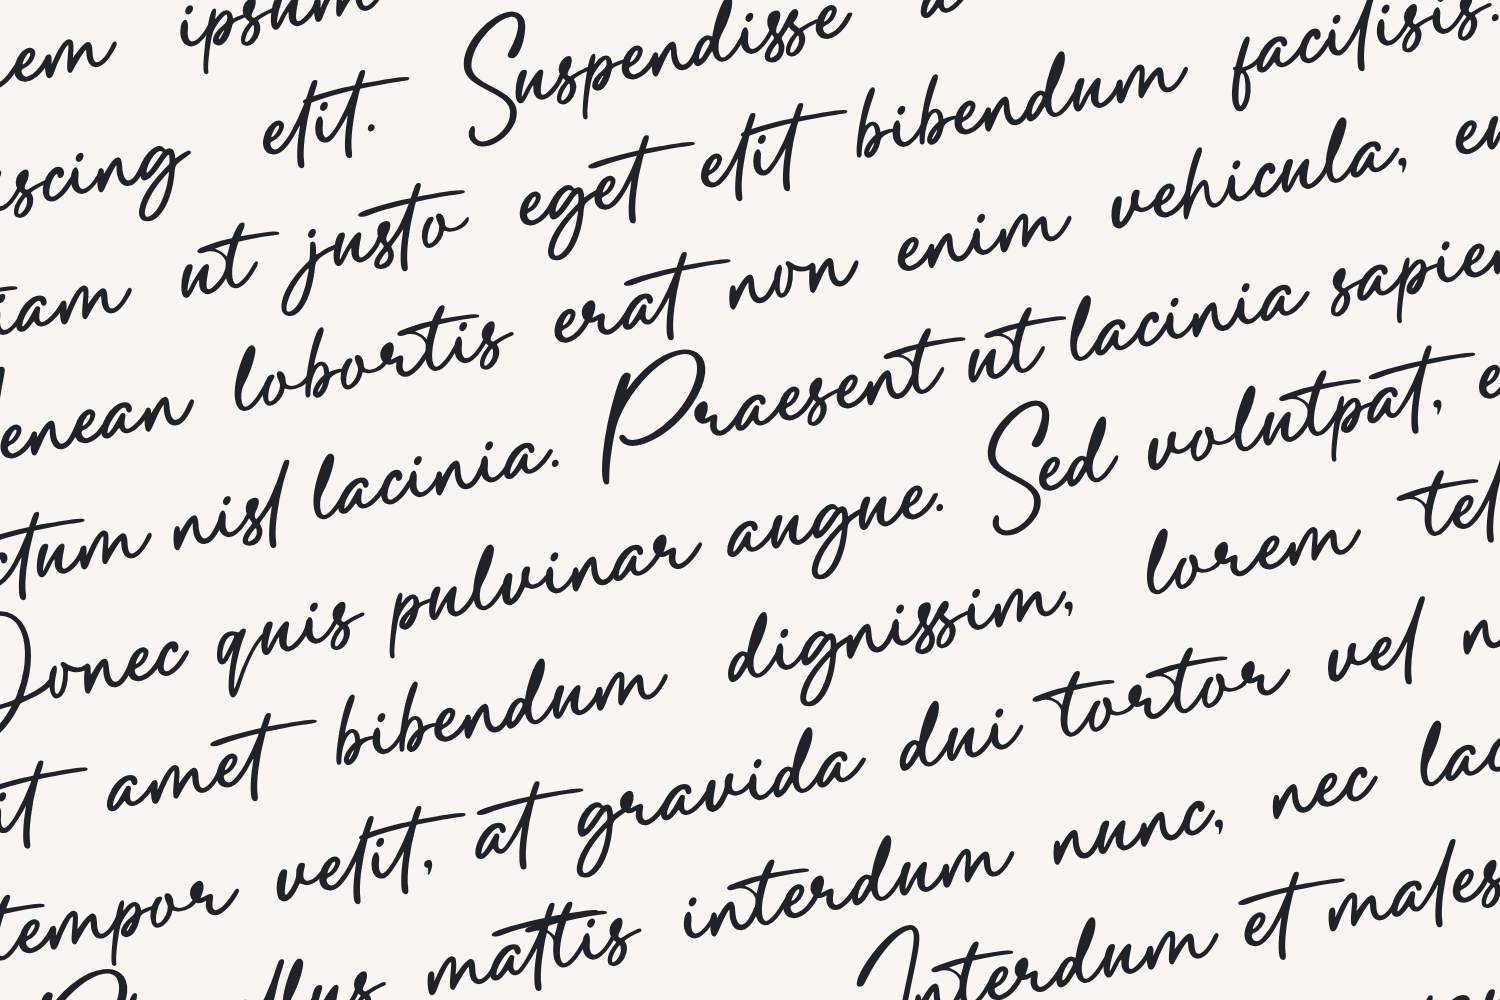 em ipsum
iscing elit. Suspendisse a
iam ut justo eget elit bibendum facilisis.
enean lobortis erat non enim vehicula, en
ctum nisl lacinia. Praesent ut lacinia sapien
Donec quis pulvinar augue. Sed volutpat, e
it amet bibendum dignissim, lorem tel
tempor velit, at gravida dui tortor vel n
mattis interdum nunc, nec lac
Interdum et males